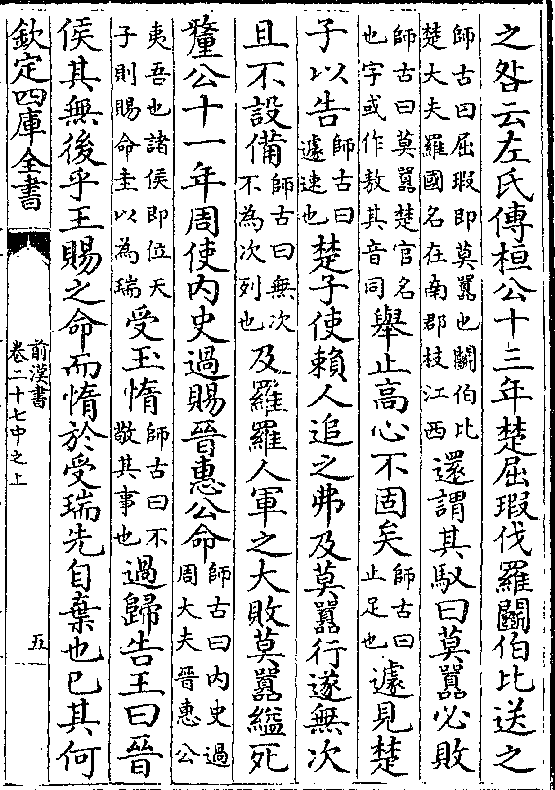 之咎云左氏傳桓公十三年楚屈瑕伐羅鬭伯比送之
師古曰屈瑕即莫嚻也鬭伯比楚大夫羅國名在南郡枝江西還謂其馭曰莫嚻必敗
師古曰莫嚻楚官名也字或作敖其音同舉止高心不固矣師古曰止足也遽見楚
子以告師古曰遽速也楚子使賴人追之弗及莫嚻行遂無次
且不設備師古曰無次不為次列也及羅羅人軍之大敗莫嚻縊死
釐公十一年周使内史過賜晉惠公命師古曰内史過周大夫晉惠公
夷吾也諸侯即位天子則賜命圭以為瑞受玉惰師古曰不敬其事也過歸告王曰晉
侯其無後乎王賜之命而惰於受瑞先自棄也已其何
欽定四庫全書
前漢書
卷二十七中之上
五